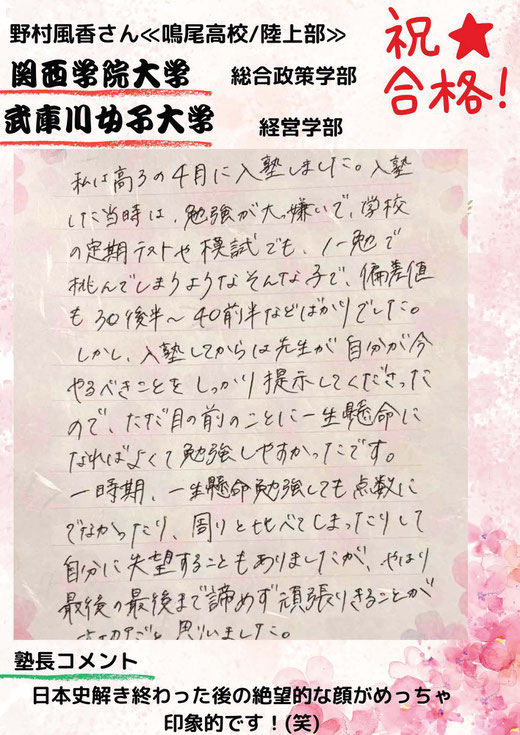 野村風香さん≪鳴尾高校/陸上部≫
祝★
合格!
関西学院大学 総合政策学部
武庫川女子大学 経営学部
私は高3の4月に入塾しました。入塾
した当時は、勉強が大っ嫌いで、学校
の定期テストや模試でも、ノー勉で
挑んでしまうようなそんな子で、偏差値
も30後半〜40前半などばかりでした。
しかし、入塾してからは先生が自分が今
やるべきことをしっかり提示してくださった
ので、ただ目の前のことに一生懸命に
なればよくて勉強しやすかったです。
一時期、一生懸命勉強しても点数に
でなかったり、周りと比べてしまったりして
自分に失望することもありましたが、やはり
最後の最後まで諦めず頑張りきることが
だと思いました。
塾長コメント
日本史解き終わった後の絶望的な顔がめっちゃ
印象的です！(笑)